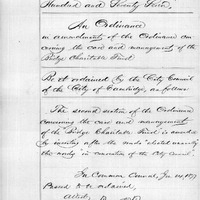 Hundred and Seventy
An Ordinance
in amendment of the Ordinance con
cerning the care and management of the
Bridge Charitable Fund
Be it ordained by the City Council
of the City of Cambridge, as follows
The second section of the Ordinance
concerning the care and management
of the Bridge Charitable Fund is amended
by inserting after the words
the words in convention of the City Council
In Common Council, Jan.
Passed to be ordained,
Attest,